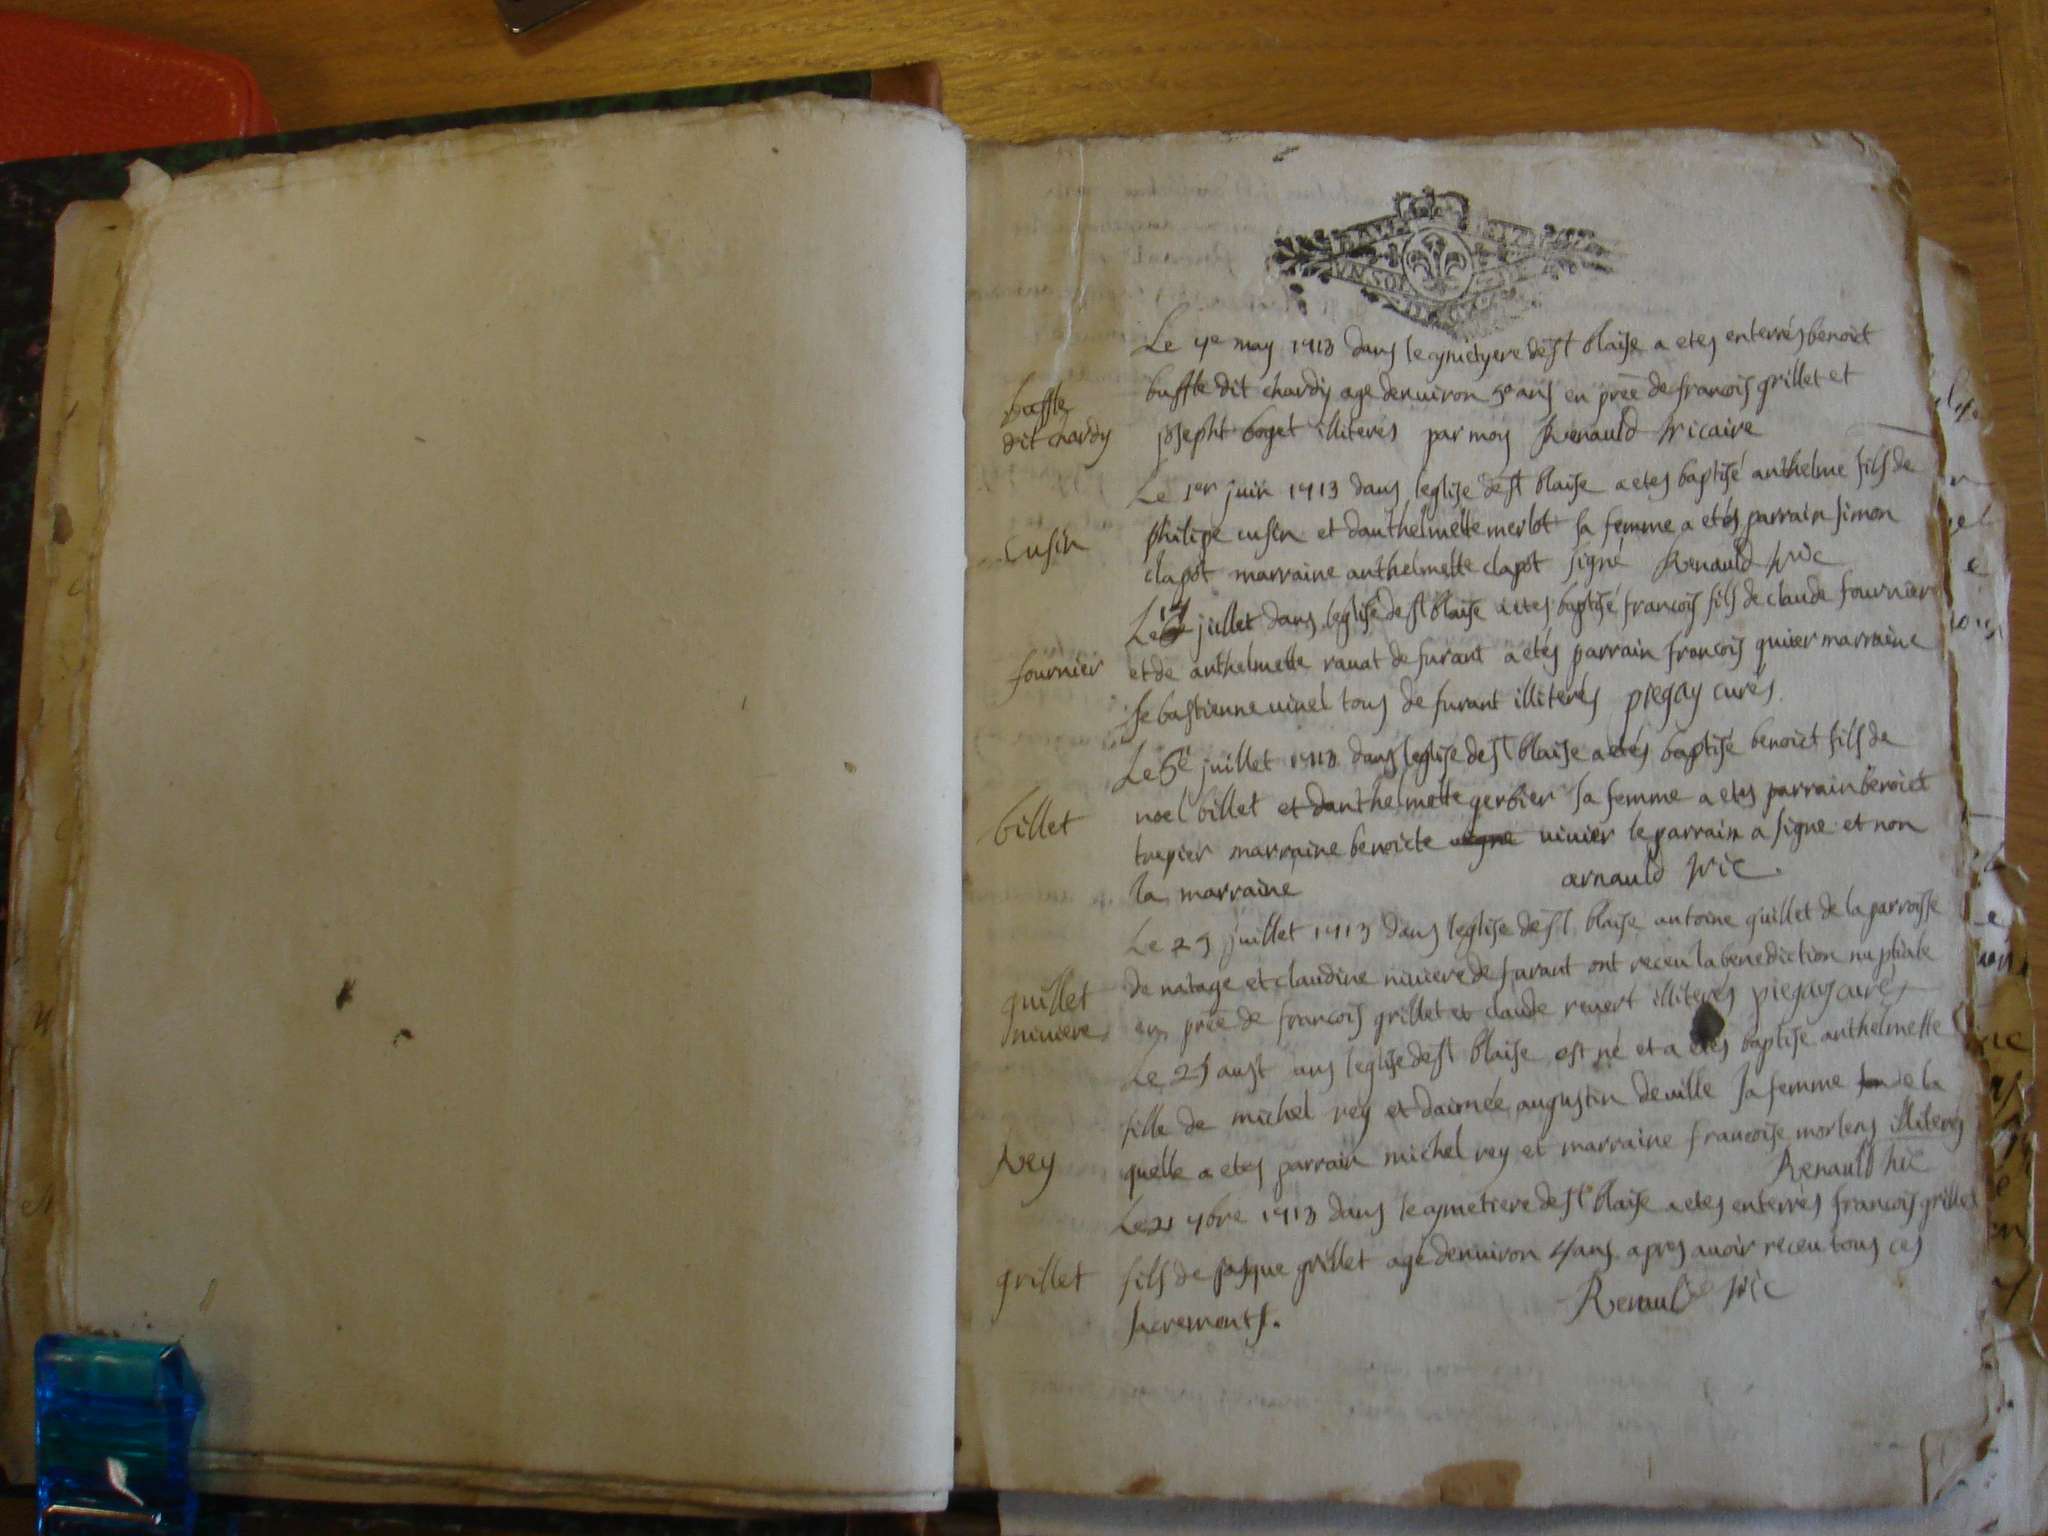 Le 4e may 1713 dans le cymetyere de st blaise a etes enterrés benoict
buffle
dit chardy
buffle dit chardy age denuiron 50 ans en prèe de francois grillet et
josepht boget illiterés par moy Renauld vicaire
Le 1er juin 1713 dans leglise de st blaise a etes baptisé anthelme fils de
Cusin
philipe cusin et danthelmette merlot sa femme a etés parrain simon
clapot marraine anthelmette clapot signé Renauld vic
Le 17 juillet dans leglise de st blaise a etes baptisé francois fils de claude fournier
fournier
et de anthelmette rauat de furant a etés parrain francois quier marraine
sebastienne uinel tous de furant illiterés piegay curés
Le 6e juillet 1713 dans leglise de st blaise a etés baptise benoict fils de
billet
noel billet et danthelmette gerbier sa femme a etes parrain benoict
trepier marraine benoicte uiuier le parrain a signe et non
la marraine arnauld vic
Le 25 juillet 1713 dans leglise de st blaise antoine guillet de la parroisse
guillet
niuiere
de natage et claudine niuiere de furant ont receu la benediction nuptiale
en prèe de francois grillet et claude reuert illiterés piegay curés
Le 25 aust ans leglise de st blaise est né et a etes baptise anthelmette
Rey
fille de michel rey et daimée augustin deuille sa femme de la
quelle a etes parrain michel rey et marraine francoise mortens illiterés
Renauld vic
Le 21 7bre 1713 dans le cymetiere de st blaise a etes enterrés francois grillet
grillet
fils de jasque grillet agé denuiron 4 ans apres auoir receu tous ces
sacrements. Renauld vic